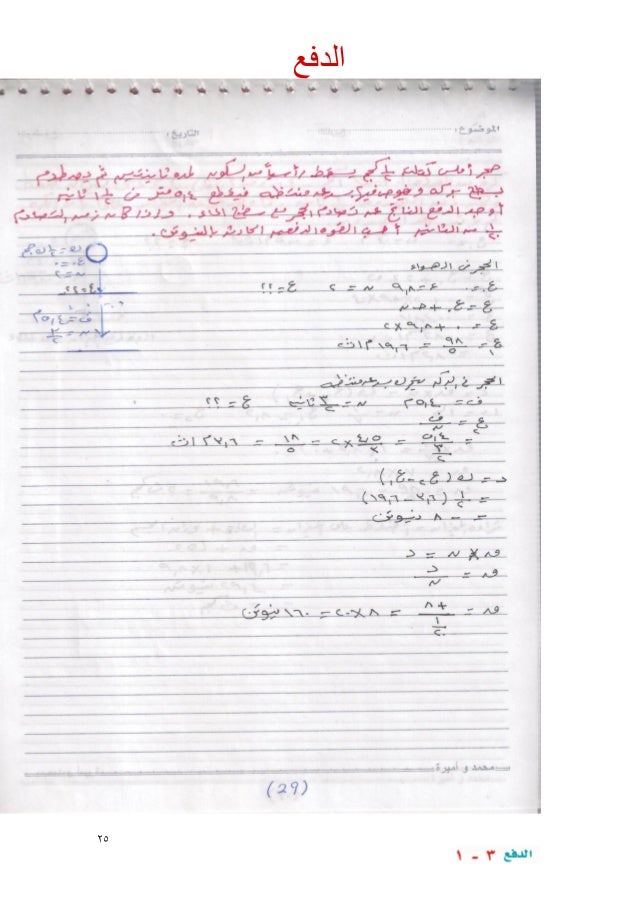 الدفع
الموضوع: التاريخ:
حجر أملس كتلته ½ كجم يسقط رأسياً من السكون لمدة ثانيتين ثم يصطدم
بسطح بركه ويغوص فيها بسرعه منتظمه فيقطع ٥,٤ متر فى ١½ ثانيه
أوجد الدفع الناتج عن تصادم الحجر مع سطح الماء. وإذا كان زمن التصادم
١/٢٠ من الثانيه أحسب القوه الدفعيه الحادثه بالنيوتن.
ك = ½ كجم
ع. = ٠
ن = ٢
ع = ؟؟
ف = ٥,٤ م
ن = ٣/٢
الحجر فى الهواء
ع. = ٠ ء = ٩,٨ ن = ٢ ع = ؟؟
ع = ع. + حـ ن
ع = ٠ + ٩,٨ × ٢
ع١ = ٩٨/٥ = ١٩,٦ م/ث
الحجر فى البركه يتحرك بسرعه منتظمه
ف = ٥,٤ م ن = ٣/٢ ثانيه ع = ؟؟
ع٢ = ف/ن
= ٥,٤ / (٣/٢) = = ١٨/٥ = ٣,٦ م/ث
د = ك (ع٢ - ع١)
= ½ (٣,٦ - ١٩,٦)
= - ٨ نيوتن
ق × ن = د
ق = د/ن
ق = +٨ / (١/٢٠) = ٨ × ٢٠ = ١٦٠ نيوتن
محمد و أميرة
(29)
٢٥
الدفع ٣ - ١